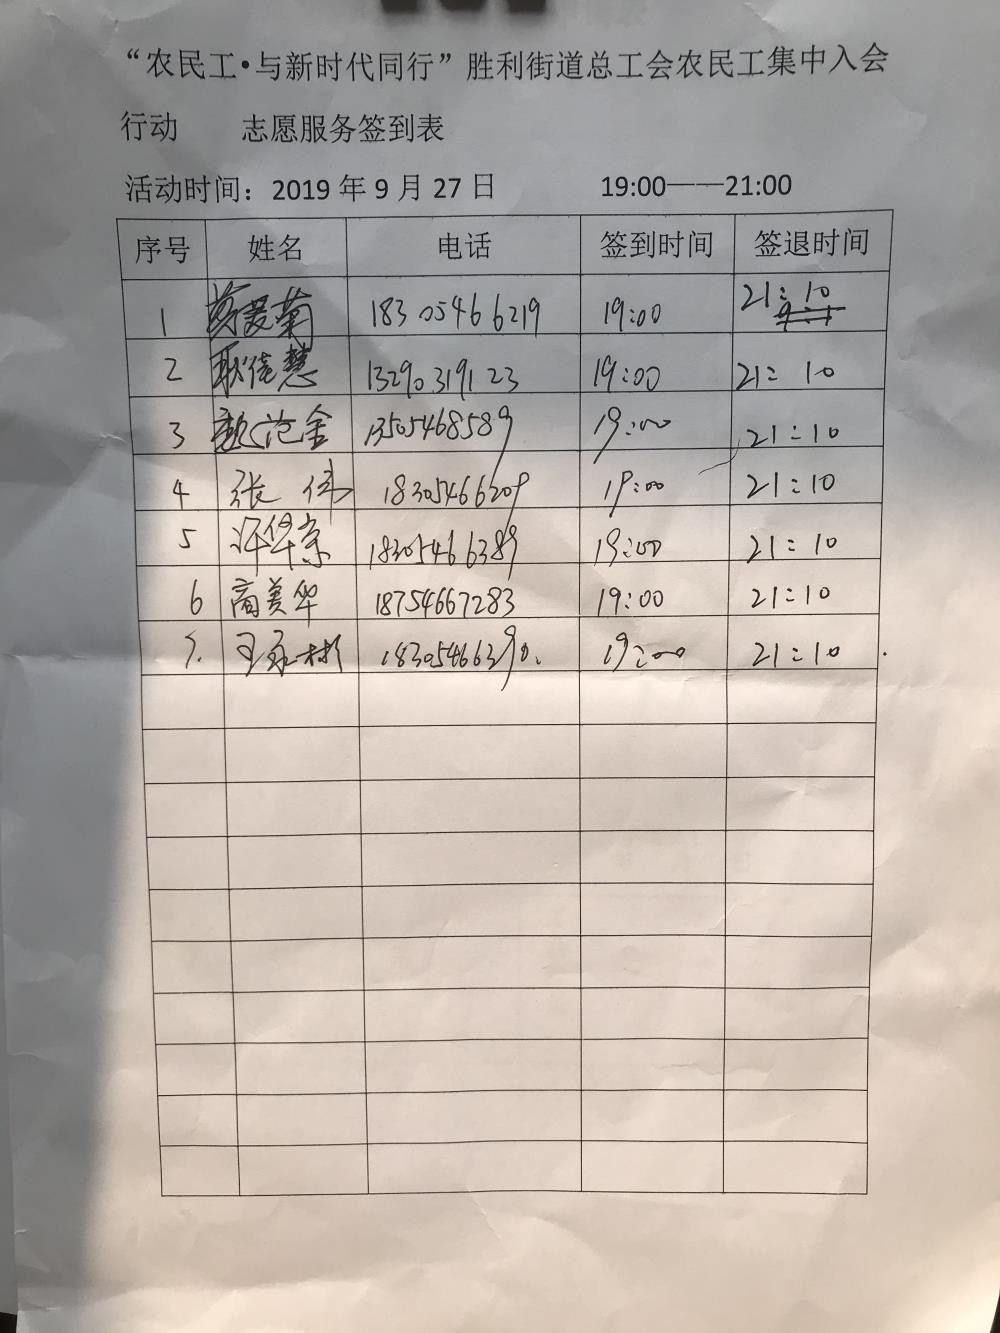 “农民工·与新时代同行”胜利街道总工会农民工集中入会
行动 志愿服务签到表
活动时间：2019年9月27日 19:00——21:00
序号 姓名 电话 签到时间 签退时间
1 18305466219 19:00 21:10
2 耿倩慧 13290319123 19:00 21:10
3 13505468589 19:00 21:10
4 张伟 18305466209 19:00 21:10
5 18305466389 19:00 21:10
6 商美华 18754667283 19:00 21:10
7. 王永彬 18305466390. 19:00 21:10